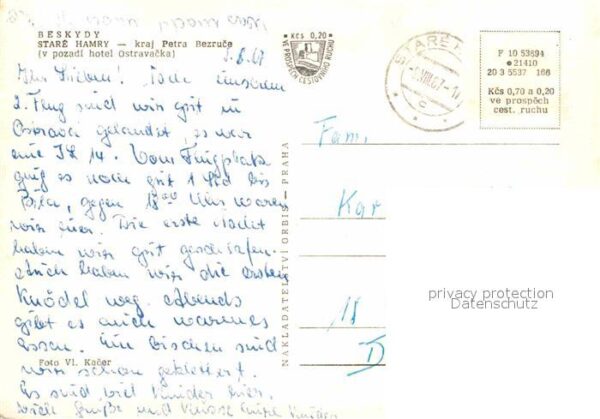 BESKYDY
STARÉ HAMRY — kraj Petra Bezruče
(v pozadí hotel Ostravačka)
Kčs 0,20
VE PROSPĚCH CESTOVNÍHO RUCHU
F 10 53894
21410
20 3 5537 166
Kčs 0,70 a 0,20
ve prospěch
cest. ruchu
Ihr Lieben! Nach unserem
2. Flug sind wir gut in
gelandet, es war
eine IL 14. Vom Flugplatz
ging es noch gut 1 Std bis
Bila, gegen 18.00 Uhr waren
wir hier. Die erste Nacht
haben wir gut geschlafen.
Auch haben wir die ersten
Knödel weg. Abends
gibt es auch warmes
Essen. Ein bischen sind
wir schon geklettert.
Es sind viel Kinder hier.
Viele Grüße und Küsse Eure Kinder
Fam.
Kar
D
NAKLADATELSTVÍ ORBIS — PRAHA
Foto Vl. Kačer
privacy protection
Datenschutz